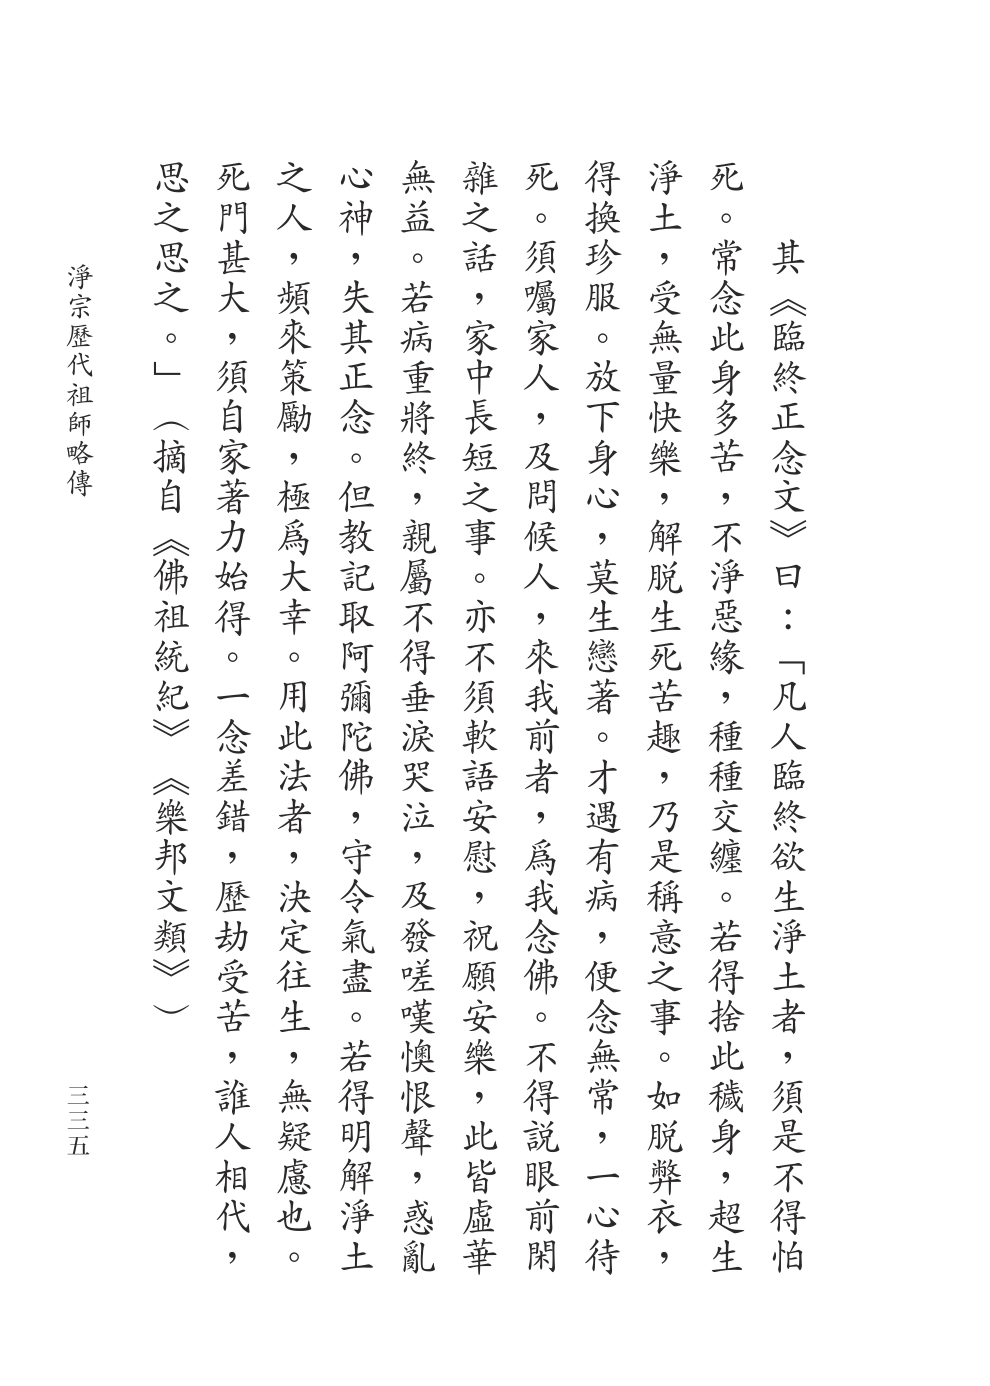 其《臨終正念文》曰：「凡人臨終欲生淨土者，須是不得怕
死。常念此身多苦，不淨惡緣，種種交纏。若得捨此穢身，超生
淨土，受無量快樂，解脫生死苦趣，乃是稱意之事。如脫弊衣，
得換珍服。放下身心，莫生戀著。才遇有病，便念無常，一心待
死。須囑家人，及問候人，來我前者，爲我念佛。不得説眼前閑
雜之話，家中長短之事。亦不須軟語安慰，祝願安樂，此皆虛華
無益。若病重將終，親屬不得垂淚哭泣，及發嗟嘆懊恨聲，惑亂
心神，失其正念。但教記取阿彌陀佛，守令氣盡。若得明解淨土
之人，頻來策勵，極爲大幸。用此法者，決定往生，無疑慮也。
死門甚大，須自家著力始得。一念差錯，歷劫受苦，誰人相代，
思之思之。」（摘自《佛祖統紀》《樂邦文類》）
淨宗歷代祖師略傳
三三五